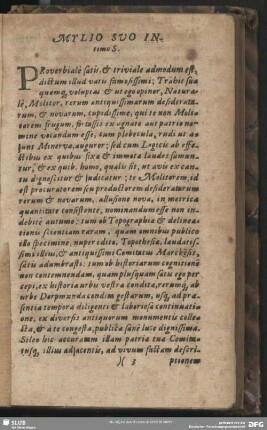 MYLIO SVO IN-
timo S.
PRoverbiale satis, & triviale admodum est,
dictum illud vatis famosissimi; Trahit sua
quemq; voluptas & ut ego opinor, Natura-
le, Molitor, rerum antiquissimarum desiderata-
rum, & novarum, cupidissime, qui te non Molito-
torem frugum, sicuti ex ignoto aut patrio no-
mine volandum esse, cum plebecula, rudi ut ajunt
Minerva, auguror; sed cum Logicis ab effe-
ctibus ex quibus fixa & immota laudes sumun-
tur, & ex quib. homo, qualis sit, ut avis ex can-
tu dignoscitur & judicatur; te Molitorem, id
est procuratorem seu productorem desideratarum
rerum & novarum, allusione nova, in metrica
quantitate consistente, nominandum esse non in-
debitè autumo: tum ob Topographiæ & delinea-
tionis scientiam raram, quam omnibus publico
illo specimine, nuper edito, Topothesia, laudatis-
simi illius, & antiquissimi Comitatus Marchiæ,
satis adumbrasti: tum ob historiarum cognitionem
non contemnendam, quam plusquam satis ego per-
cepi, ex historia urbis vestra condita, rerumq; ab
urbe Dorpmunda condita gestarum, usq; ad præ-
sentia tempora diligenti & laboriosa continuatio-
ne, ex diversis antiquorum monumentis colle-
cta, & à te congesta, publica sanè luce dignissima.
Sileo hîc accuratam illam patriæ tuæ Comita-
tusq; illius adjacentis, ad vivum factam descri-
)( 3 ptionem
SLUB
DFG